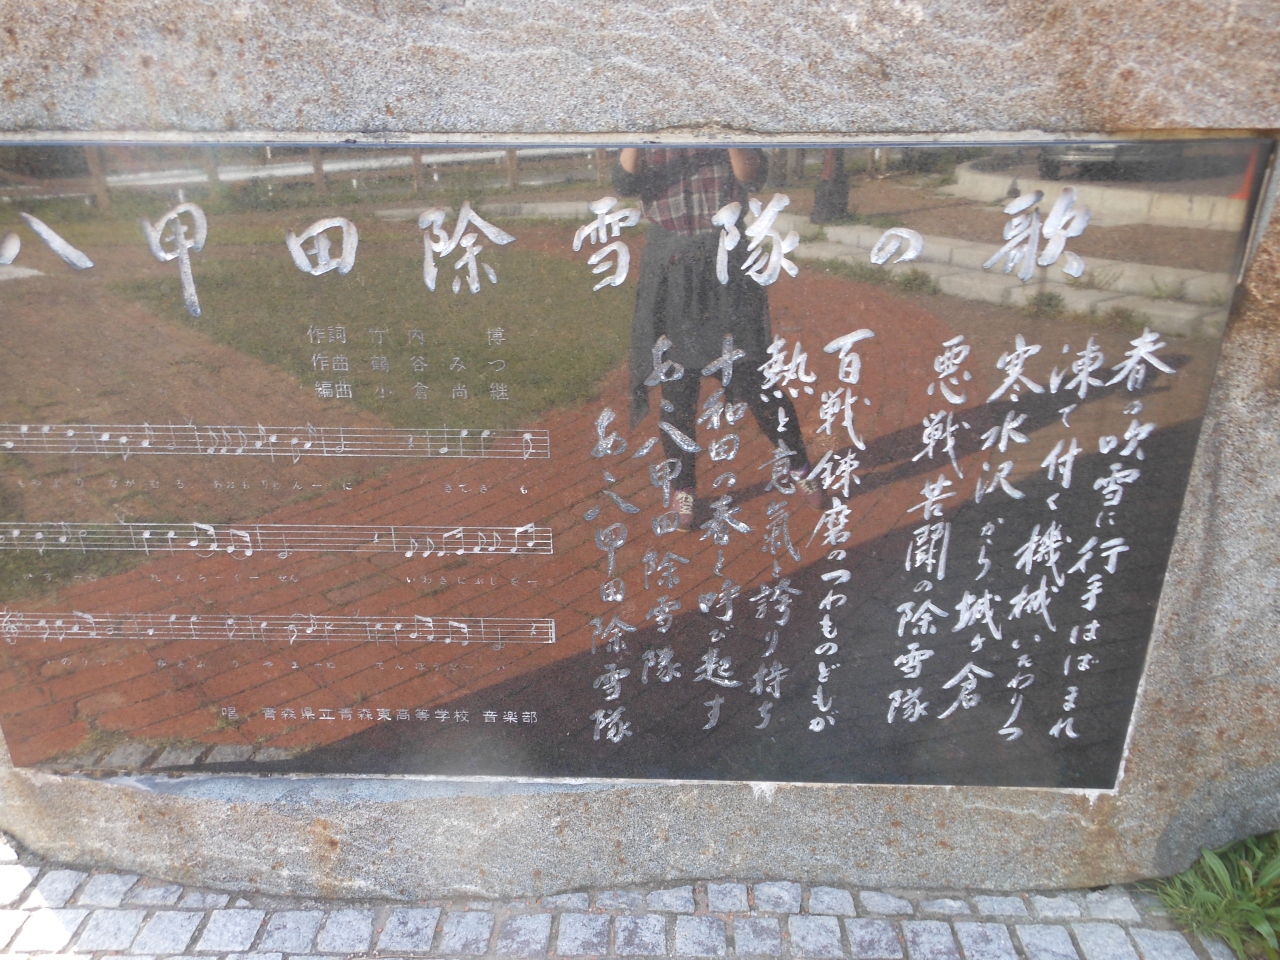 八甲田除雪隊の歌
作詞 竹内 博
作曲 鶴谷みつ
編曲 小倉尚継
春の吹雪に行手はばまれ
凍て付く機械いたわりつ
寒水沢から城ケ倉
悪戦苦闘の除雪隊
百戦錬磨のつわものどもが
熱と意気を誇り持ち
十和田の春を呼び起す
あゝ八甲田除雪隊
あゝ八甲田除雪隊
唱 青森県立青森東高等学校 音楽部